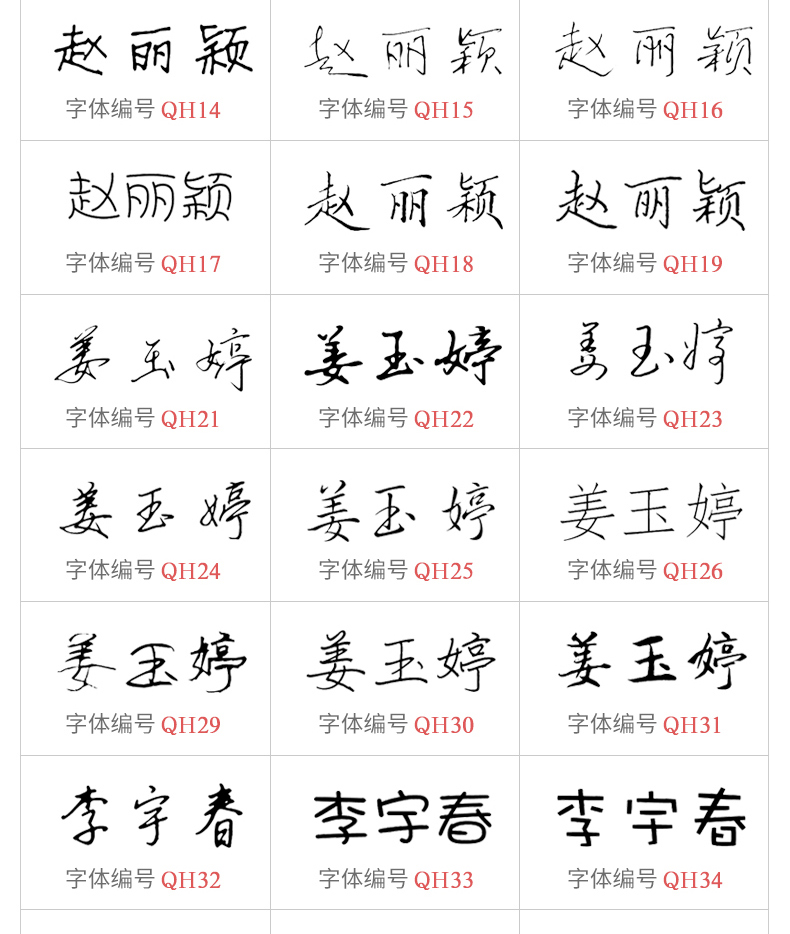 赵丽颖 赵丽颖 赵丽颖
字体编号 QH14 字体编号 QH15 字体编号 QH16
赵丽颖 赵丽颖 赵丽颖
字体编号 QH17 字体编号 QH18 字体编号 QH19
姜玉婷 姜玉婷 姜玉婷
字体编号 QH21 字体编号 QH22 字体编号 QH23
姜玉婷 姜玉婷 姜玉婷
字体编号 QH24 字体编号 QH25 字体编号 QH26
姜玉婷 姜玉婷 姜玉婷
字体编号 QH29 字体编号 QH30 字体编号 QH31
李宇春 李宇春 李宇春
字体编号 QH32 字体编号 QH33 字体编号 QH34